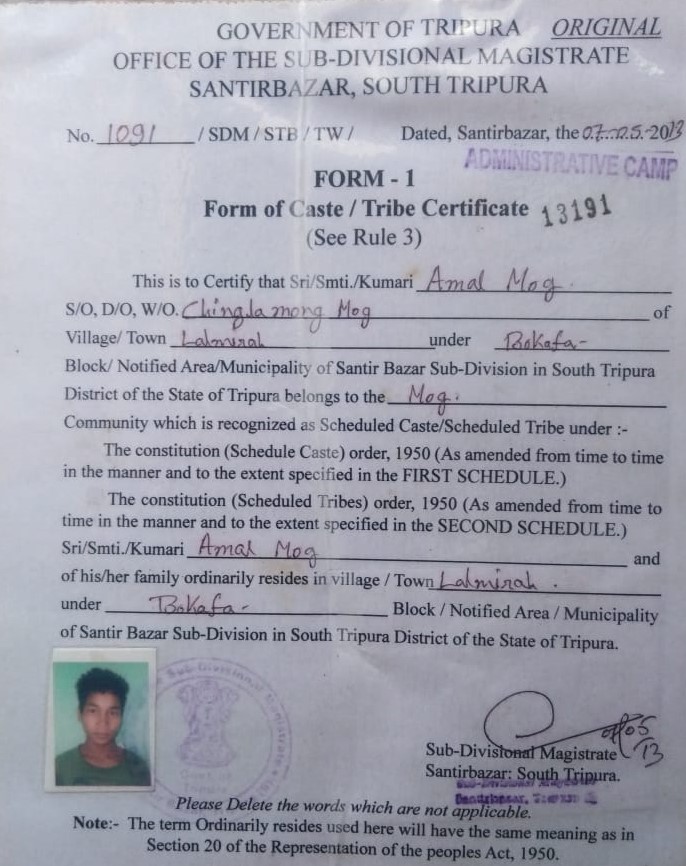 GOVERNMENT OF TRIPURA ORIGINAL
OFFICE OF THE SUB-DIVISIONAL MAGISTRATE
SANTIRBAZAR, SOUTH TRIPURA
No. 1091 / SDM / STB / TW / Dated, Santirbazar, the 07.05.2013
ADMINISTRATIVE CAMP
FORM - 1
Form of Caste / Tribe Certificate 13191
(See Rule 3)
This is to Certify that Sri/Smti./Kumari Amal Mog.
S/O, D/O, W/O. Chingla mong Mog of
Village/ Town Lalmirah under Bokafa-
Block/ Notified Area/Municipality of Santir Bazar Sub-Division in South Tripura
District of the State of Tripura belongs to the Mog.
Community which is recognized as Scheduled Caste/Scheduled Tribe under :-
The constitution (Schedule Caste) order, 1950 (As amended from time to time
in the manner and to the extent specified in the FIRST SCHEDULE.)
The constitution (Scheduled Tribes) order, 1950 (As amended from time to
time in the manner and to the extent specified in the SECOND SCHEDULE.)
Sri/Smti./Kumari Amal Mog and
of his/her family ordinarily resides in village / Town Lalmirah .
under Bokafa- Block / Notified Area / Municipality
of Santir Bazar Sub-Division in South Tripura District of the State of Tripura.
Sub-Divisional Magistrate
Santirbazar: South Tripura.
Sub-Divisional Magistrate
Santirbazar,
Please Delete the words which are not applicable.
Note:- The term Ordinarily resides used here will have the same meaning as in
Section 20 of the Representation of the peoples Act, 1950.